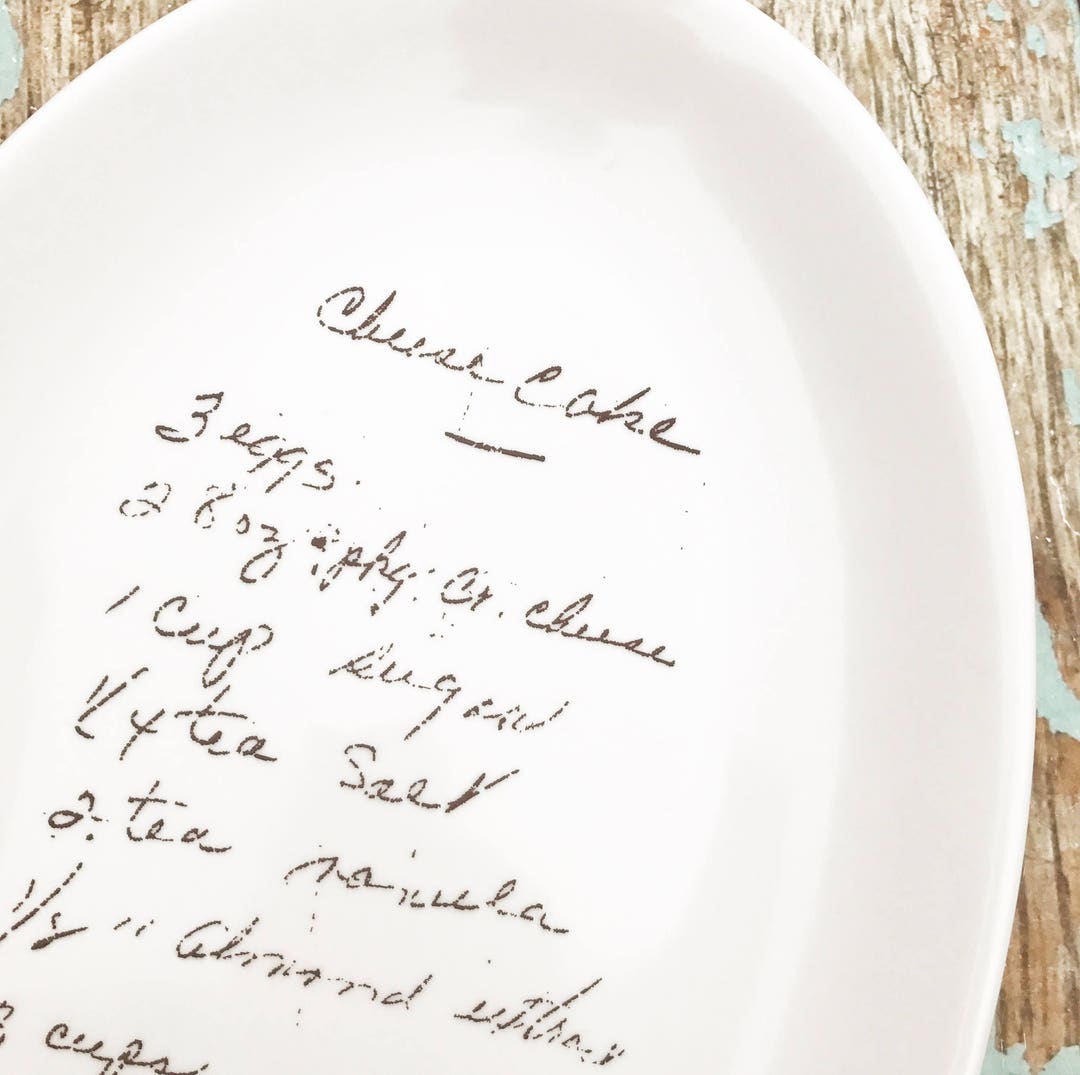 Cheese Cake
3 eggs.
2 8 oz. pkg. Cr. cheese
1 Cup sugar
1/4 tea Salt
2. tea vanilla
1/2 " Almond extract
3 cups